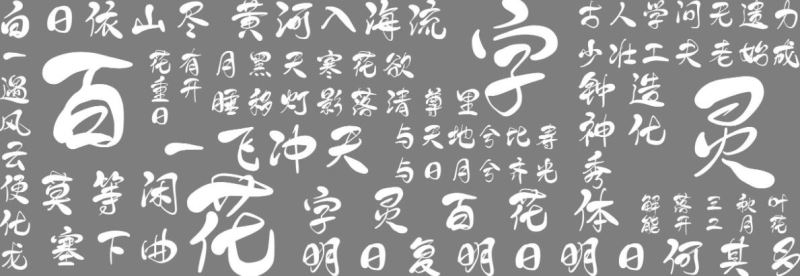 白日依山尽 黄河入海流
古人学问无遗力
少壮工夫老始成
一遇风云便化龙
百
花有
重开
日
月黑天寒花欲
睡移灯影落清尊里
字
造化
钟神秀
灵
一飞冲天
与天地兮比寿
与日月兮齐光
莫等闲
塞下曲
花
字灵百花体
解落三秋叶
能开二月花
明日复明日明日何其多